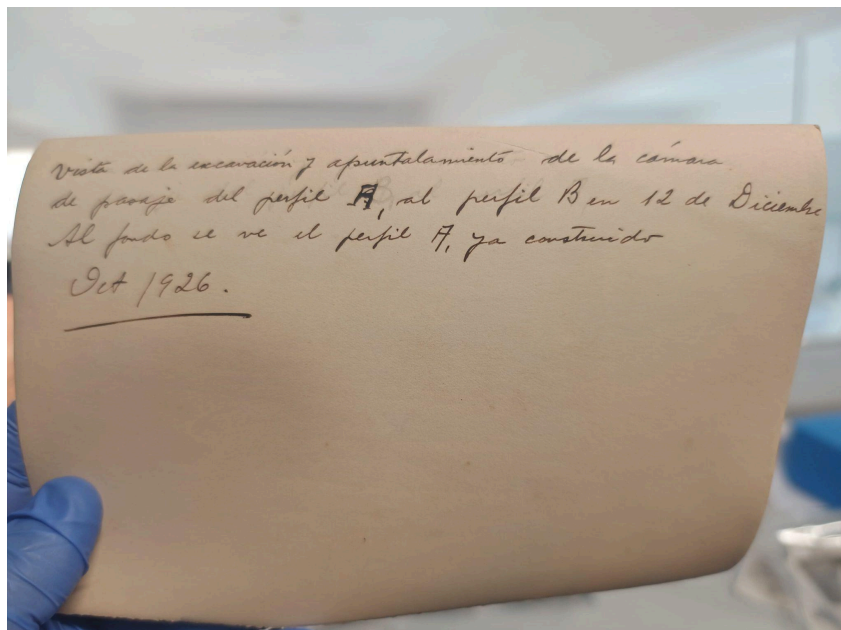 Vista de la excavación y apuntalamiento de la cámara
de pasaje del perfil A, al perfil B en 12 de Diciembre
Al fondo se ve el perfil A, ya construido
Oct 1926.